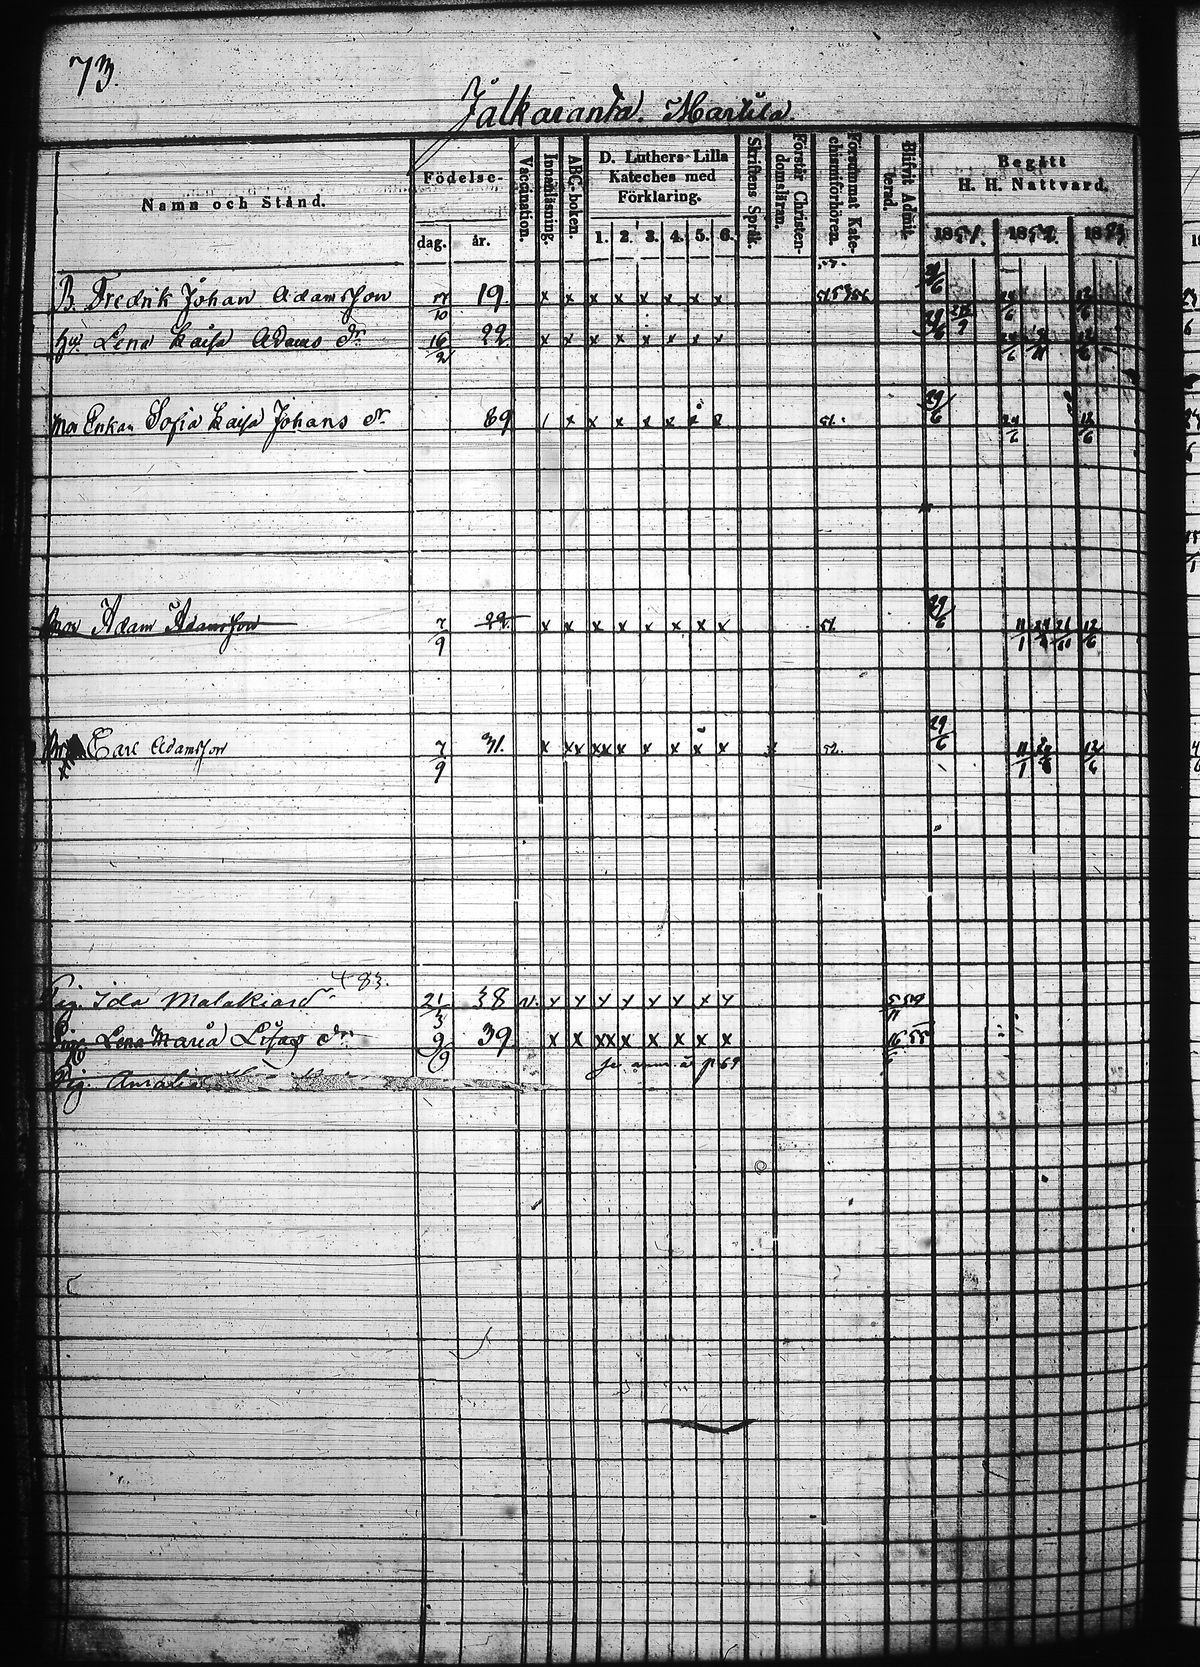 73.
Jalkaranta. Martila
Namn och Stånd.
Födelse-
dag. år.
Vaccination.
Innanläsning.
ABC-boken.
D. Luthers Lilla
Kateches med
Förklaring.
1. 2. 3. 4. 5. 6.
Skriftens Språk.
Förstår Christen-
domsläran.
Försummat Kate-
chismiförhören.
Blifvit Admit-
terad.
Begått
H. H. Nattvard.
1851. 1852. 1853
B. Fredrik Johan Adamsson 7/10 19. x x x x x x x x 29/6 24/6 12/6
Hu. Lena Kaisa Adams dr 16/2 22 x x x x x x x x 24/6 12/6
Mor Enkan Sofia Kaisa Johans dr 69 51. 29/6 24/6 12/6
Adam Adamsson 7/9 22 x x x x x x x x 51. 29/6 11/1 24/6 12/6
Carl Adamsson 7/9 31. x xx xx x x x x x 52. 29/6 11/1 24/6 12/6
483.
Pig. Ida Malakias dr 21/3 38 v. x x x x x x x x
Lena Maria dr 9/9 39 x x xx x x x x x 16/6 55
Pig. Amalia p 69